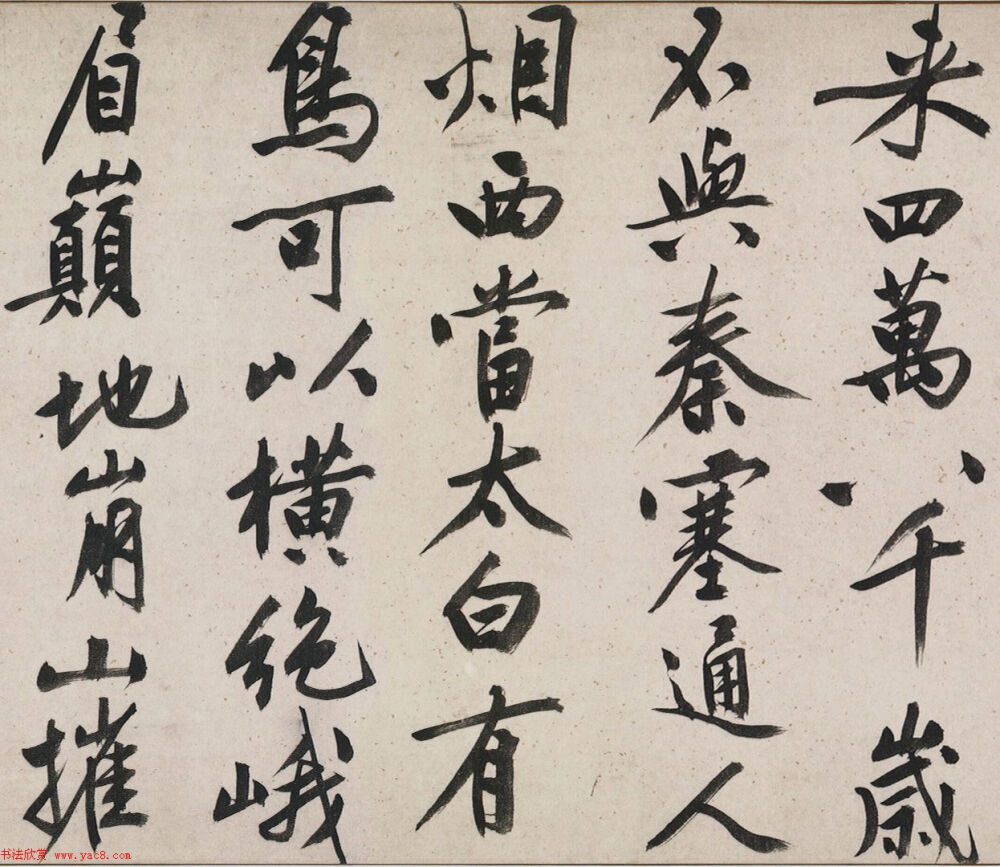 来四萬八千歲
不與秦塞通人
烟西當太白有
鳥可以橫絶峨
眉巔地崩山摧
书法欣赏 www.yac8.com